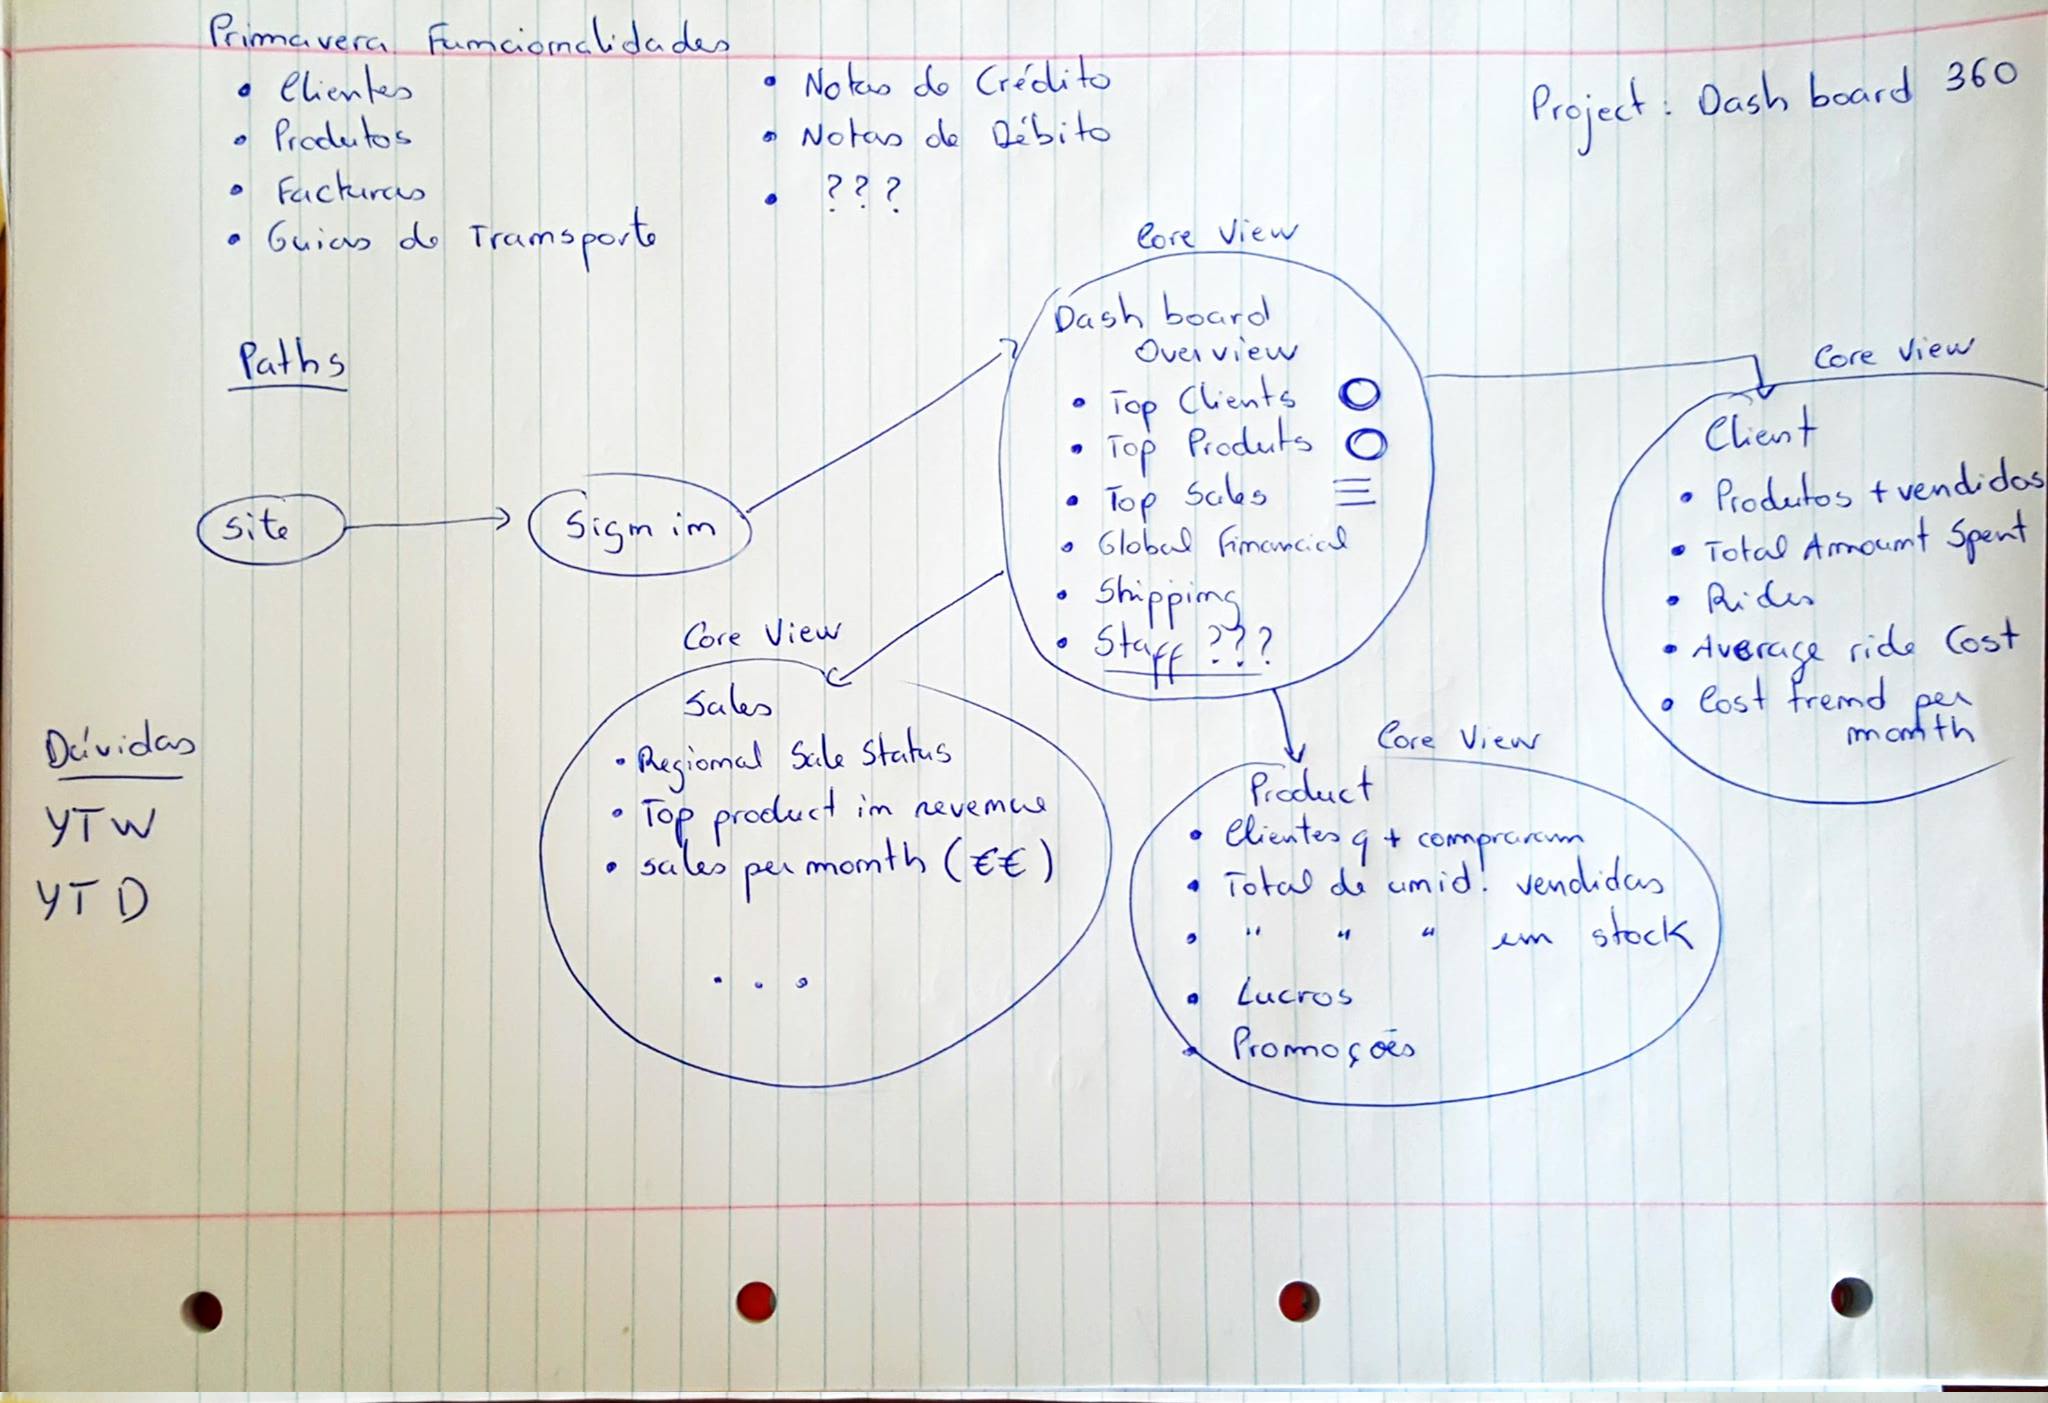 Primavera Funcionalidades
• Clientes
• Produtos
• Facturas
• Guias de Transporte
• Notas de Crédito
• Notas de Débito
• ???
Project: Dashboard 360
Paths
Site
Sign in
Core View
Dashboard
Overview
• Top Clients
• Top Produts
• Top Sales
• Global Financial
• Shipping
• Staff ???
Core View
Client
• Produtos + vendidos
• Total Amount Spent
• Rides
• Average ride Cost
• Cost trend per
month
Core View
Sales
• Regional Sale Status
• Top product in revenue
• sales per month (€€)
. . .
Core View
Product
• Clientes q + compraram
• Total de unid. vendidas
• " " " em stock
• Lucros
• Promoções
Dúvidas
YTW
YTD